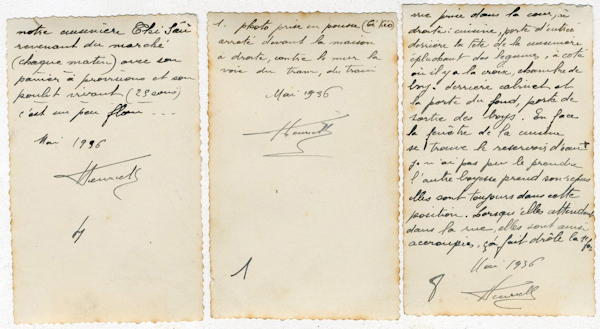 notre cuisinière Thi Sau
revenant du marché
(chaque matin) avec son
panier à provisions et son
poulet vivant (23 sous)
c'est un peu flou....
Mai 1936
Henriett
4
1. photo prise en pousse
arrêté devant la maison
à droite, contre le mur la
voie du tram, du train
Mai 1936
Henriett
1
vue prise dans la cour, à
droite : cuisine, porte d'entrée
derrière la tête de la cuisinière
épluchant des légumes, à côté
où il y a la croix, chambre de
boy. derrière cabinet et
la porte du fond, porte de
sortie des boys. En face
la fenêtre de la cuisine
se trouve le reservoir d'eau
je n'ai pas pu le prendre
l'autre boyesse prend son repas
elles sont toujours dans cette
position. Lorsqu'elles attendent
dans la rue, elles sont aussi
accroupies, çà fait drôle la 1ère fois
Mai 1936
8
Henriett